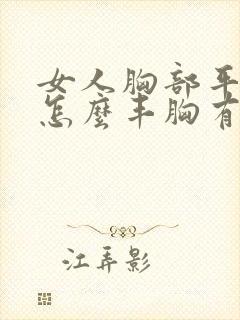 女人胸部平
怎麼丰胸有
江弄影